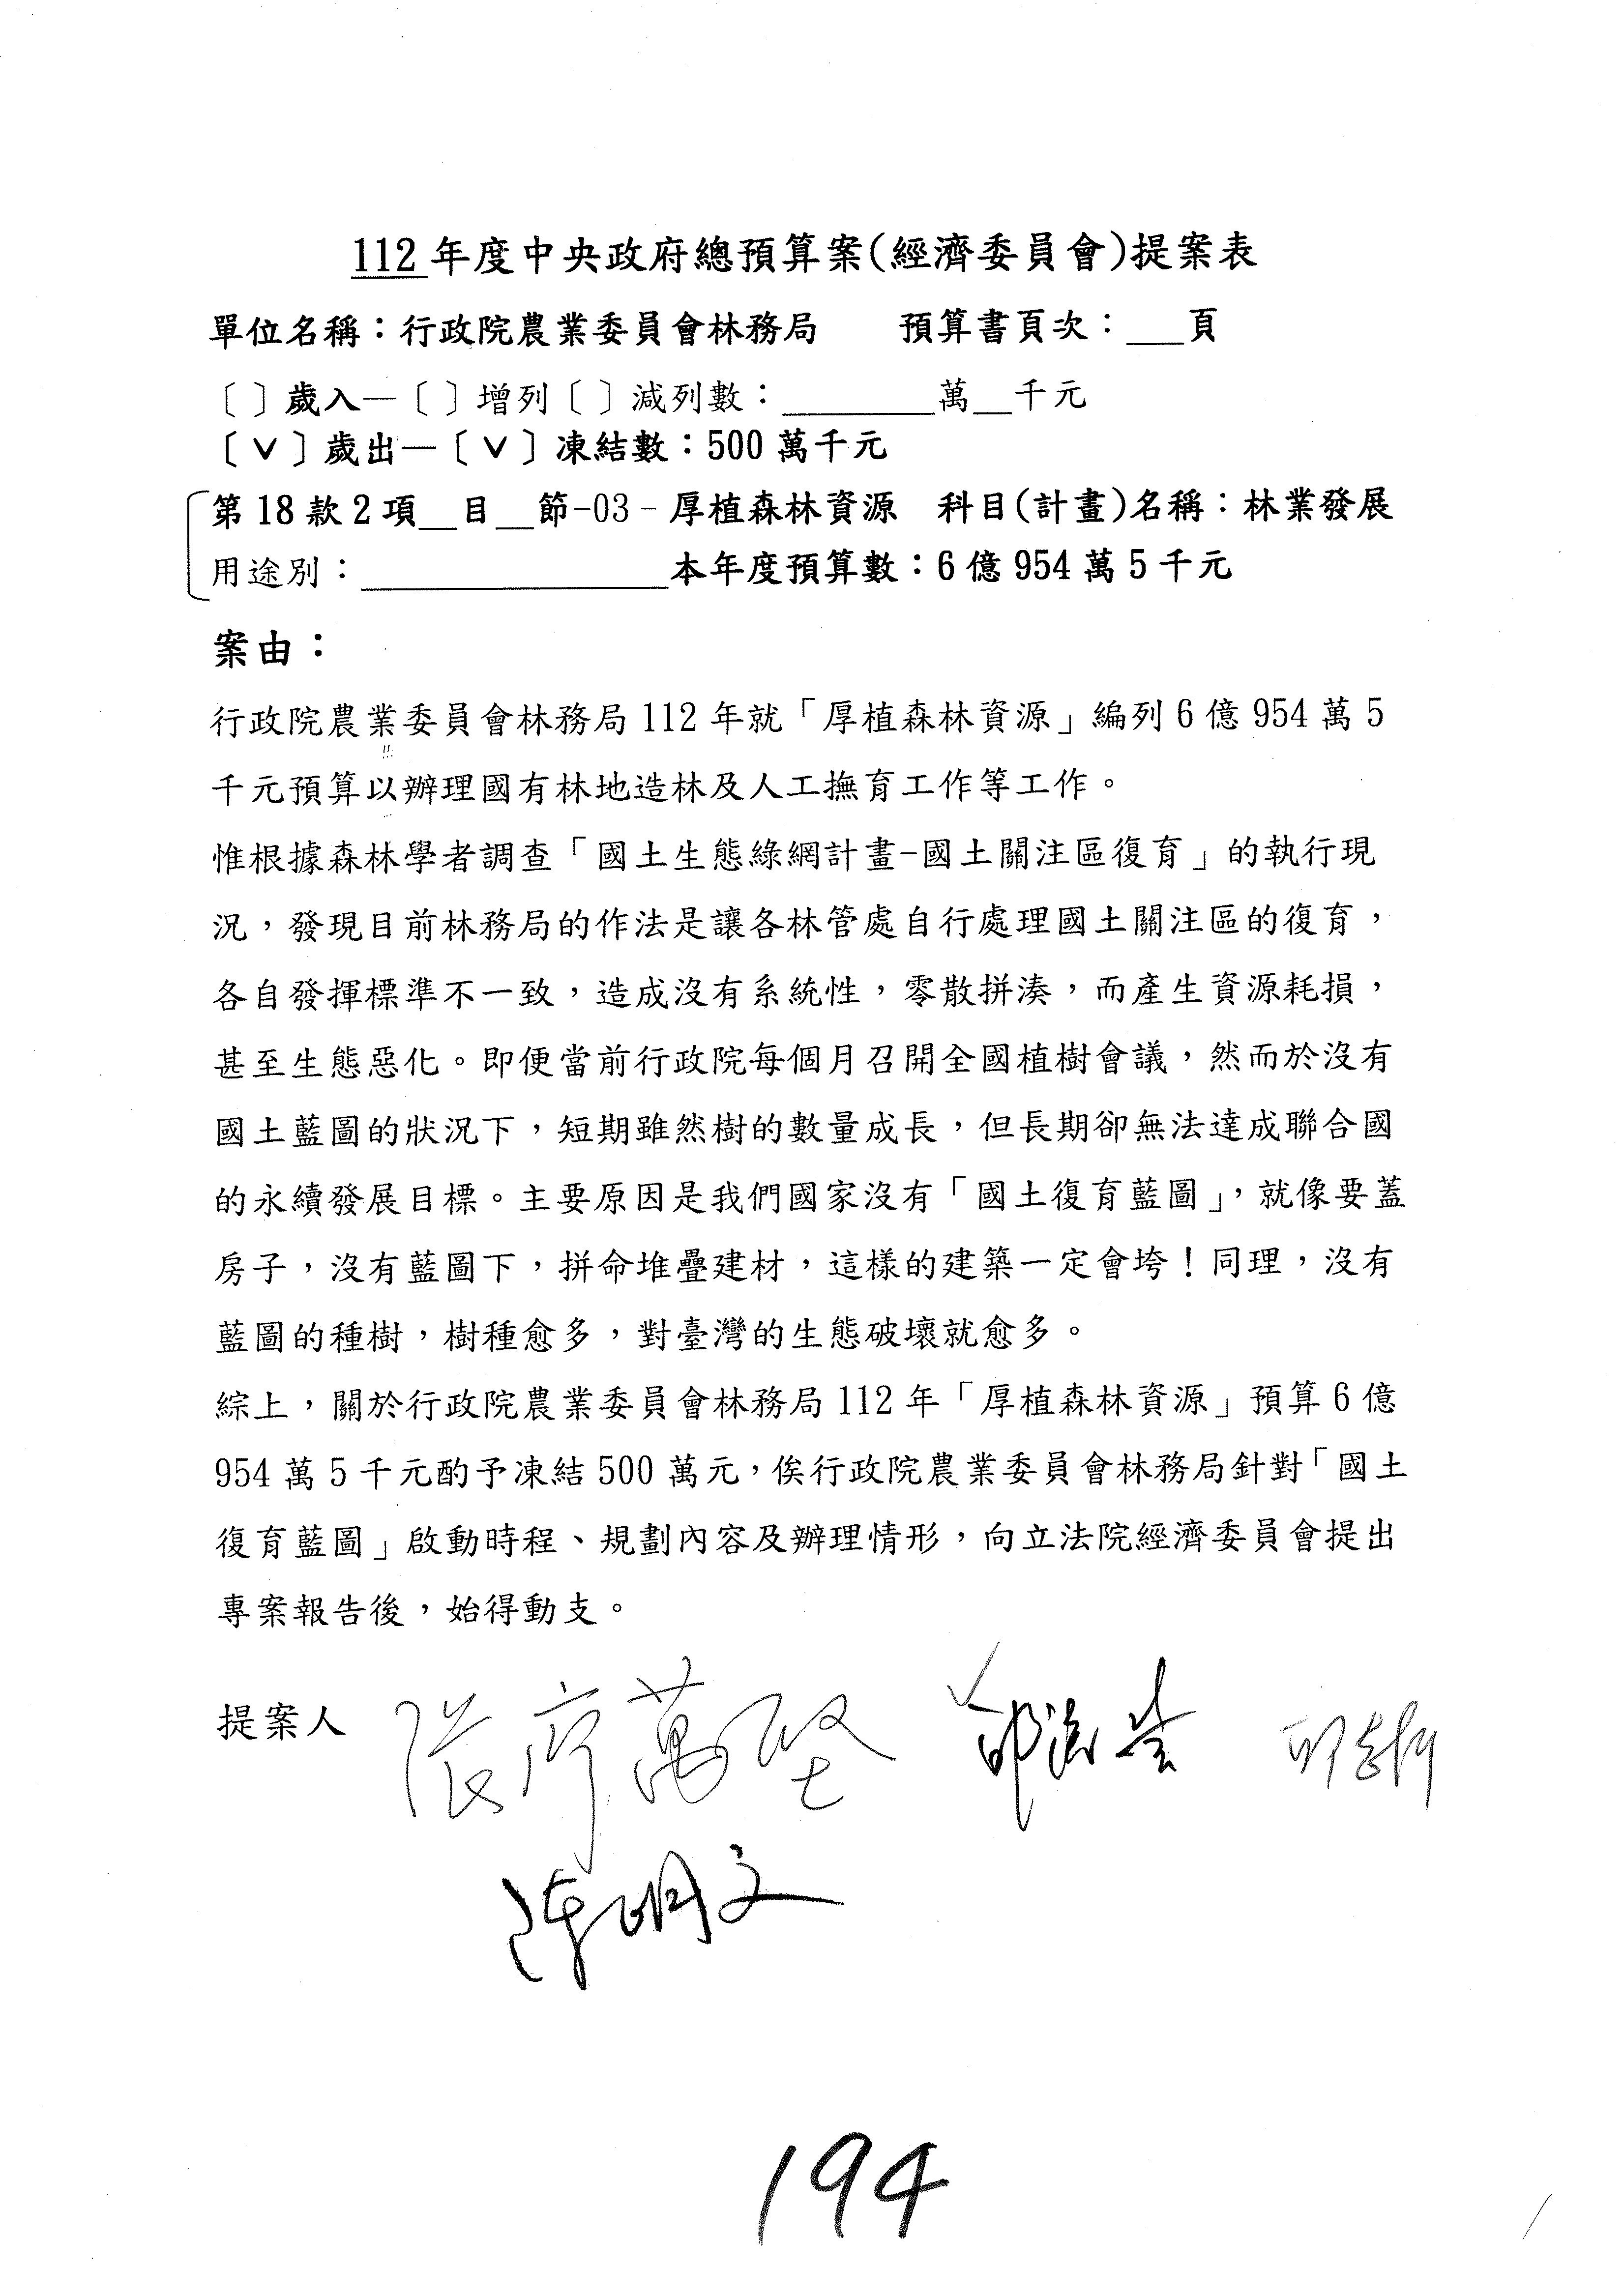 112年度中央政府總預算案(經濟委員會)提案表
單位名稱：行政院農業委員會林務局　　預算書頁次：___頁
〔 〕歲入—〔 〕增列〔 〕減列數：________萬__千元
〔∨〕歲出—〔∨〕凍結數：500萬千元
第18款2項__目__節-03-厚植森林資源　科目(計畫)名稱：林業發展
用途別：________________本年度預算數：6億954萬5千元
案由：
行政院農業委員會林務局112年就「厚植森林資源」編列6億954萬5
千元預算以辦理國有林地造林及人工撫育工作等工作。
惟根據森林學者調查「國土生態綠網計畫-國土關注區復育」的執行現
況，發現目前林務局的作法是讓各林管處自行處理國土關注區的復育，
各自發揮標準不一致，造成沒有系統性，零散拼湊，而產生資源耗損，
甚至生態惡化。即便當前行政院每個月召開全國植樹會議，然而於沒有
國土藍圖的狀況下，短期雖然樹的數量成長，但長期卻無法達成聯合國
的永續發展目標。主要原因是我們國家沒有「國土復育藍圖」，就像要蓋
房子，沒有藍圖下，拼命堆疊建材，這樣的建築一定會垮！同理，沒有
藍圖的種樹，樹種愈多，對臺灣的生態破壞就愈多。
綜上，關於行政院農業委員會林務局112年「厚植森林資源」預算6億
954萬5千元酌予凍結500萬元，俟行政院農業委員會林務局針對「國土
復育藍圖」啟動時程、規劃內容及辦理情形，向立法院經濟委員會提出
專案報告後，始得動支。
提案人 張廖萬堅
陳明文
194